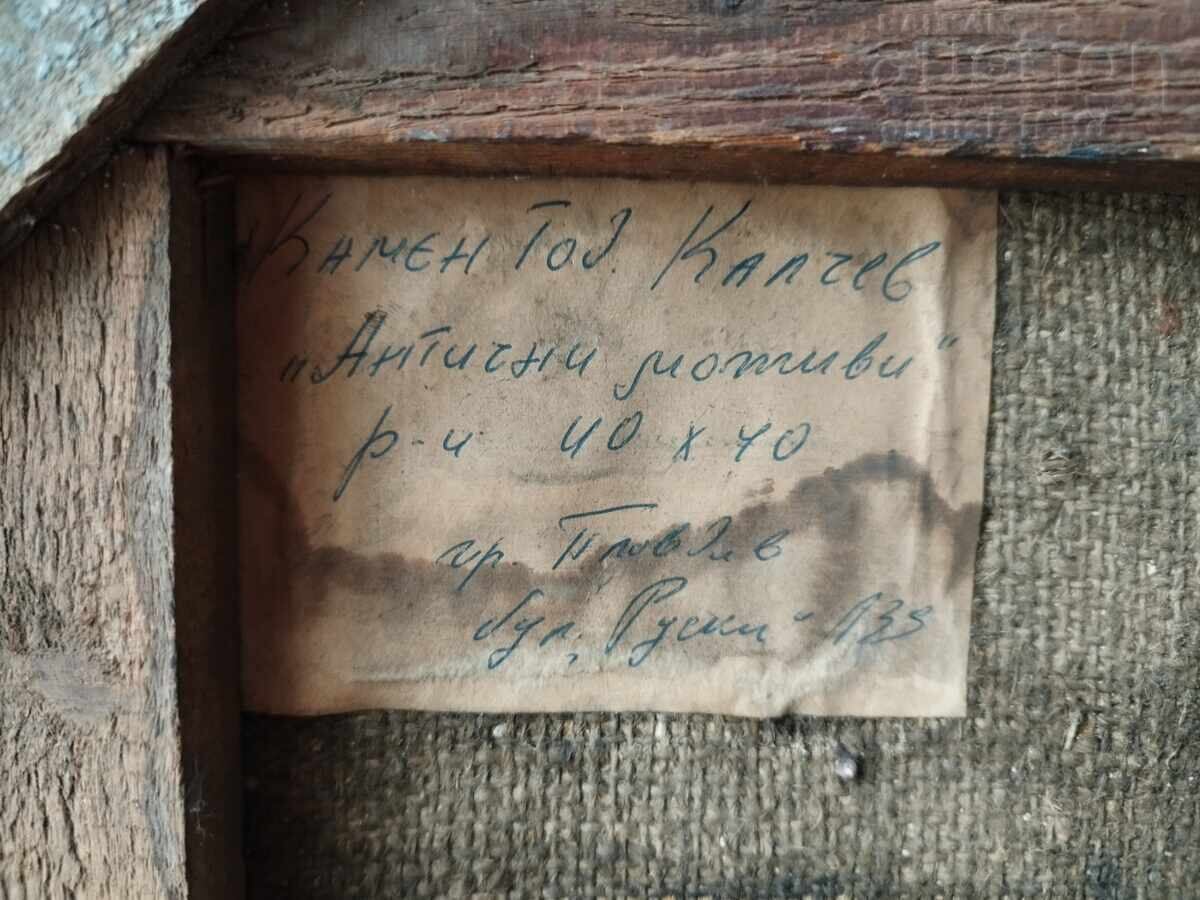 Auction
Камен Тод. Калчев
„Античн мотиви"
р-и 40 х 40
гр. Пловдив
бул. „Руски" 139